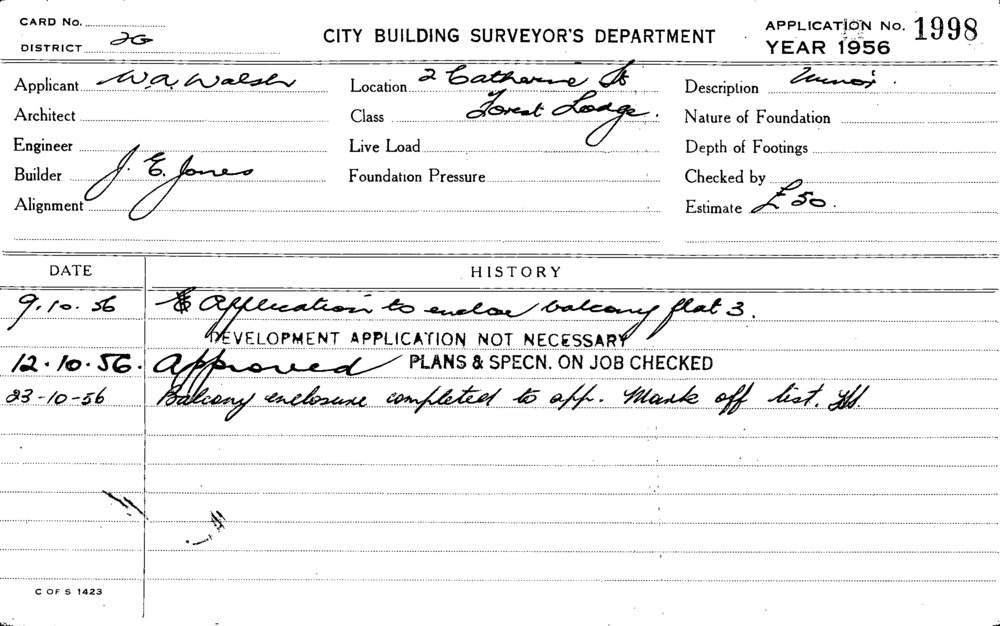 CARD No.
DISTRICT 2G
CITY BUILDING SURVEYOR'S DEPARTMENT
APPLICATION No. 1998
YEAR 1956
Applicant W.A. Walsh
Location 2 Catherine St
Description Minor.
Architect
Class Forest Lodge.
Nature of Foundation
Engineer
Live Load
Depth of Footings
Builder J. E. Jones
Foundation Pressure
Checked by
Alignment
Estimate £50.
DATE HISTORY
9.10.56 Application to enclose balcony flat 3.
DEVELOPMENT APPLICATION NOT NECESSARY
12.10.56. Approved PLANS & SPECN. ON JOB CHECKED
23-10-56 Balcony enclosure completed to app. Mark off list.
C OF S 1423